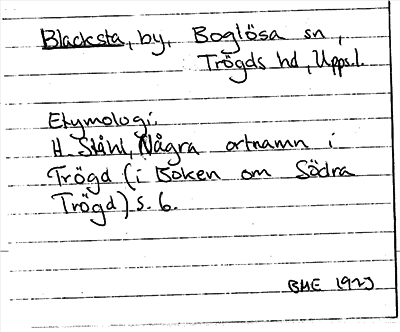 Blacksta, by, Boglösa sn,
Trögds hd, Upps.l.
Etymologi:
H. Ståhl, Några ortnamn i
Trögd (i Boken om Södra
Trögd) s. 6.
BHE 1923